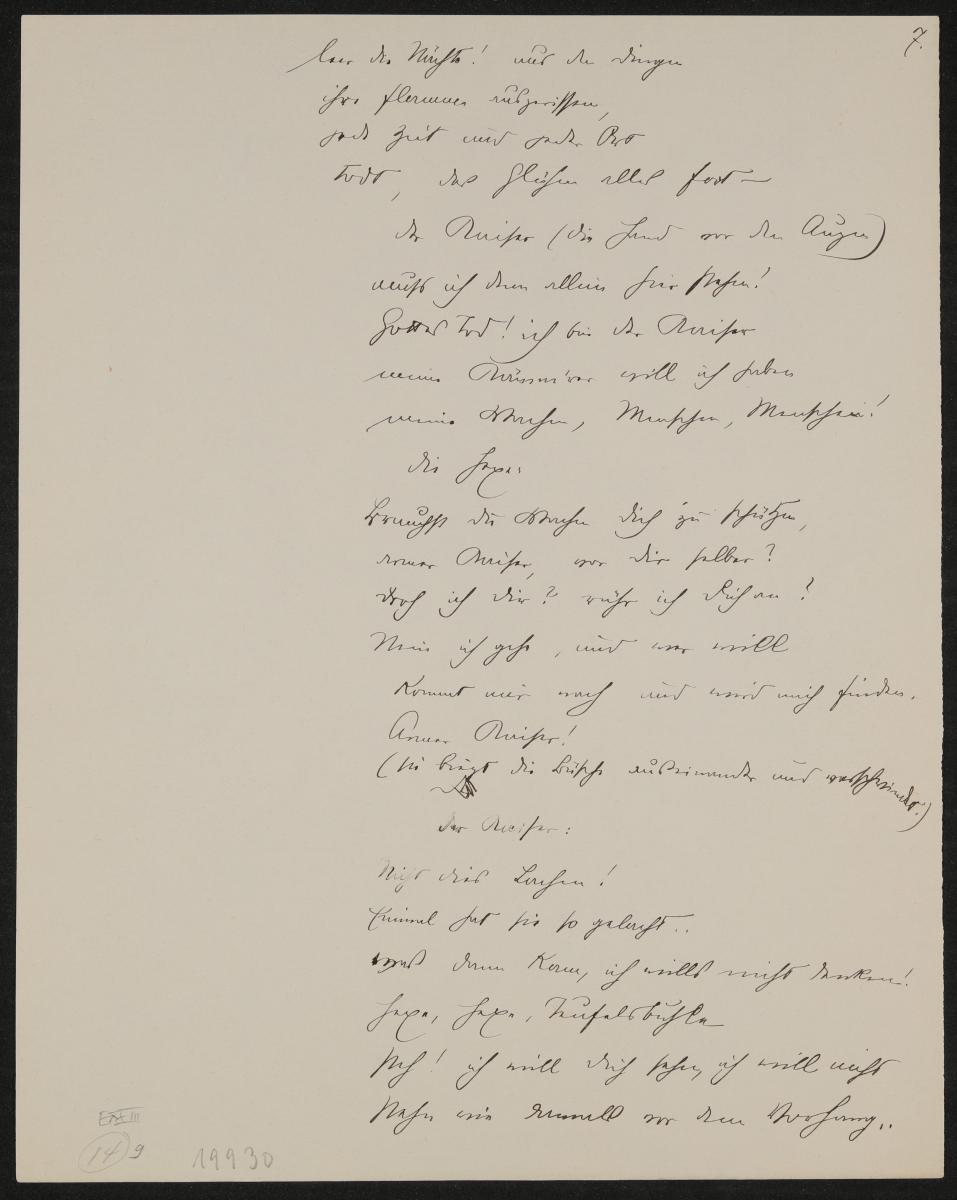 7.
leer die Nächte! aus den Dingen
ihre Flammen ausgerissen,
jede Zeit und jeder Ort
todt, das Glühen alles fort –
der Kaiser (die Hand vor den Augen)
muss ich denn allein hier stehen!
Gottes Tod! ich bin der Kaiser
meine Kämmrer will ich haben
meine Wachen, Menschen, Menschen!
die Hexe:
Brauchst du Wachen dich zu schützen,
armer Kaiser, vor dir selber?
Droh ich dir? rühr ich dich an?
Nein ich gehe, und wer will
Kommt mir nach und wird mich finden.
Armer Kaiser!
(sie biegt die Büsche auseinander und verschwindet.)
der Kaiser:
Nicht dies Lachen!
Einmal hat sie so gelacht..
was dann Kam, ich wills nicht denken!
Hexe, Hexe, Teufelsbuhle
steh! ich will dich sehn, ich will nicht
stehn wie damals vor dem Vorhang..
14 9
19930